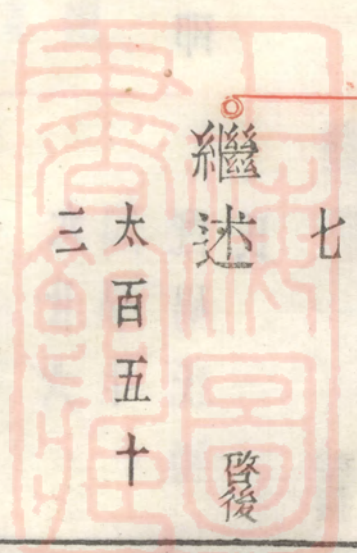 七
繼述 啓後
太百五十
三